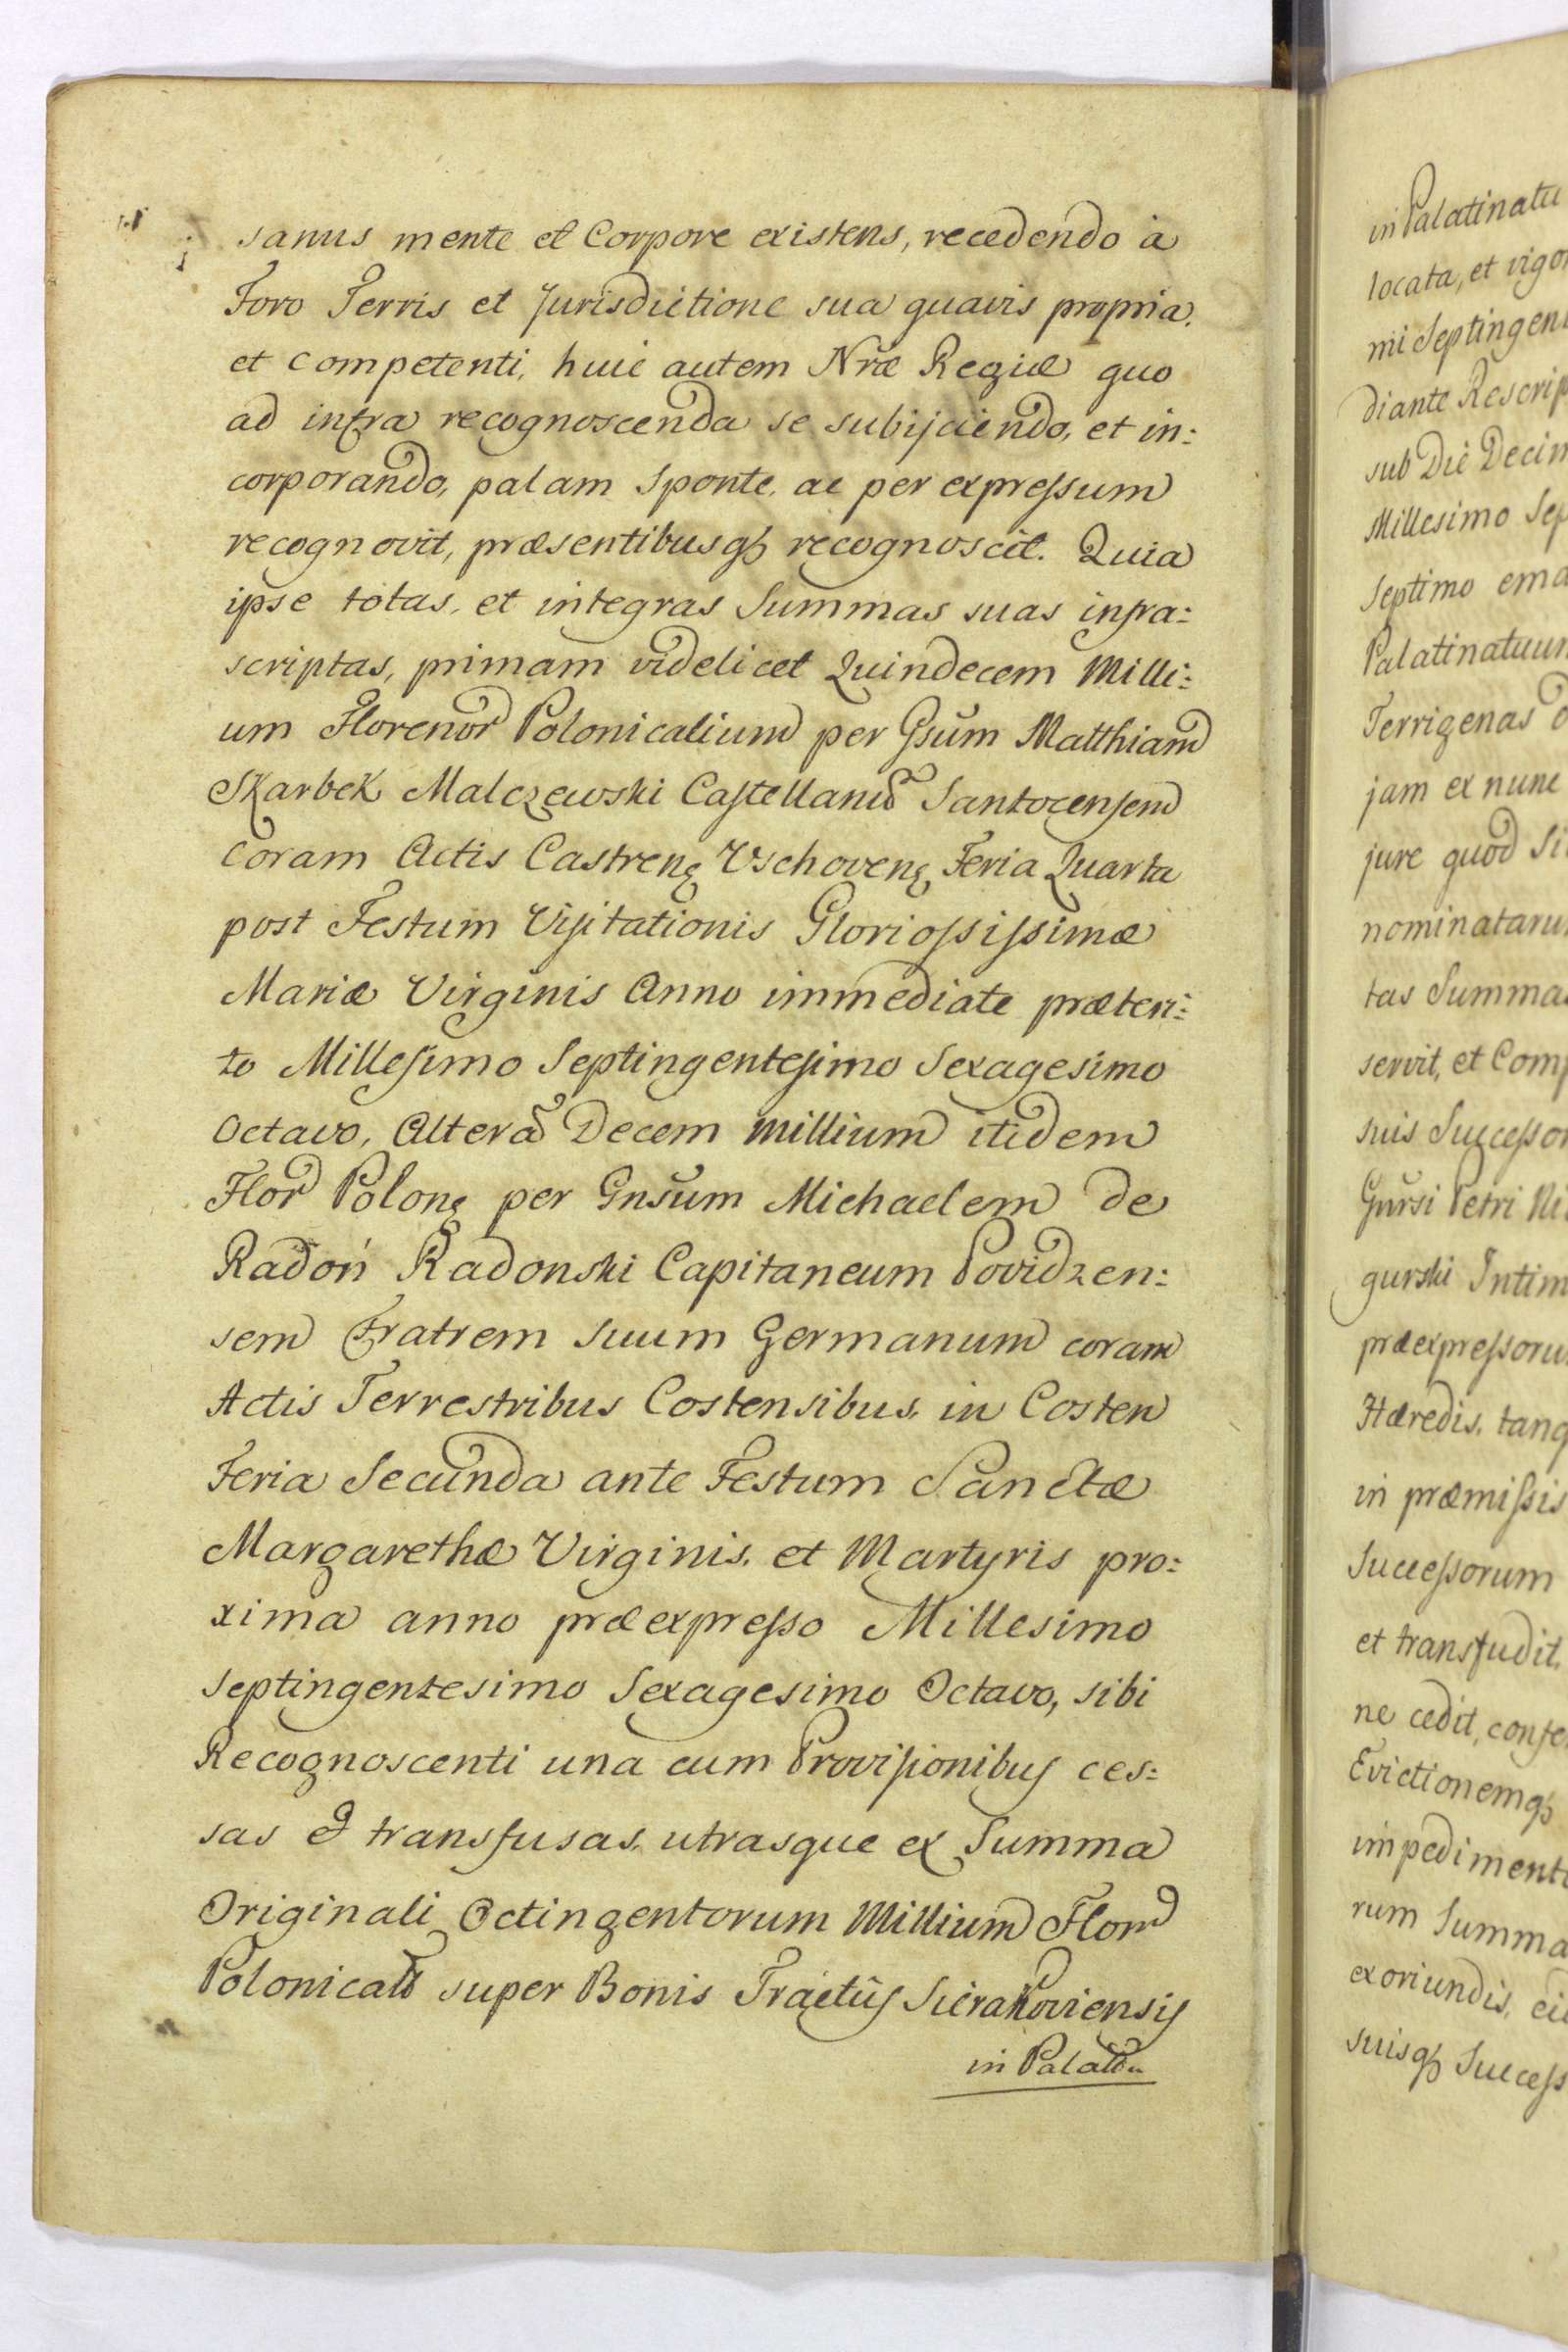 sanus mente et Corpore existens, recedendo à
Foro Terris et Jurisdictione sua quavis propria.
et Competenti, huic autem Nræ Regiæ quo
ad infra recognoscenda se subijciendo, et in:
corporando, palam Sponte, ac per expressum
recognovit, præsentibusqꝫ recognoscit. Quia
ipse totas, et integras Summas suas infra:
scriptas, primam videlicet Quindecem Milli:
um Florenor Polonicalium per Gsum Matthiam
Skarbek Malczewski Castellanū Santocensem
Coram Actis Castrenȝ Vschovenȝ Feria Quarta
post Festum Visitationis Gloriosissimæ
Mariæ Virginis Anno immediate præteri:
to Millesimo Septingentesimo Sexagesimo
Octavo, Alterā Decem Millium itidem
Flor Polonȝ per Gnsum Michaelem de
Radoń Radonski Capitaneum Povidzen:
sem Fratrem Suum Germanum coram
Actis Terrestribus Costensibus, in Costen
Feria Secunda ante Festum Sanctæ
Margarethæ Virginis, et Martyris pro:
xima anno præexpresso Millesimo
Septingentesimo Sexagesimo Octavo, sibi
Recognoscenti una cum Provisionibus ces:
sas & transfusas, utrasque ex Summa
Originali Octingentorum Millium Flor
Polonical super Bonis Tractûs Sierakoviensis
in Palatu
in Palatinatu
locata, et vigor
mi Septingent
diante Rescrip
sub Die Decim
Millesimo Sep
Septimo ema
Palatinatuum
Terrigenas
jam ex nunc
jure quod Si
nominatarum
tas Summas
servit, et Comp
suis Successor
Gnrsi Petri Ni
gurski Intim
præexpressoru
Hæredis, tanq
in præmissis
Successorum
et transfudit,
ne cedit, confe
Evictionemqꝫ
impedimento
rum Summa
exoriundis, ei
suisqꝫ Success